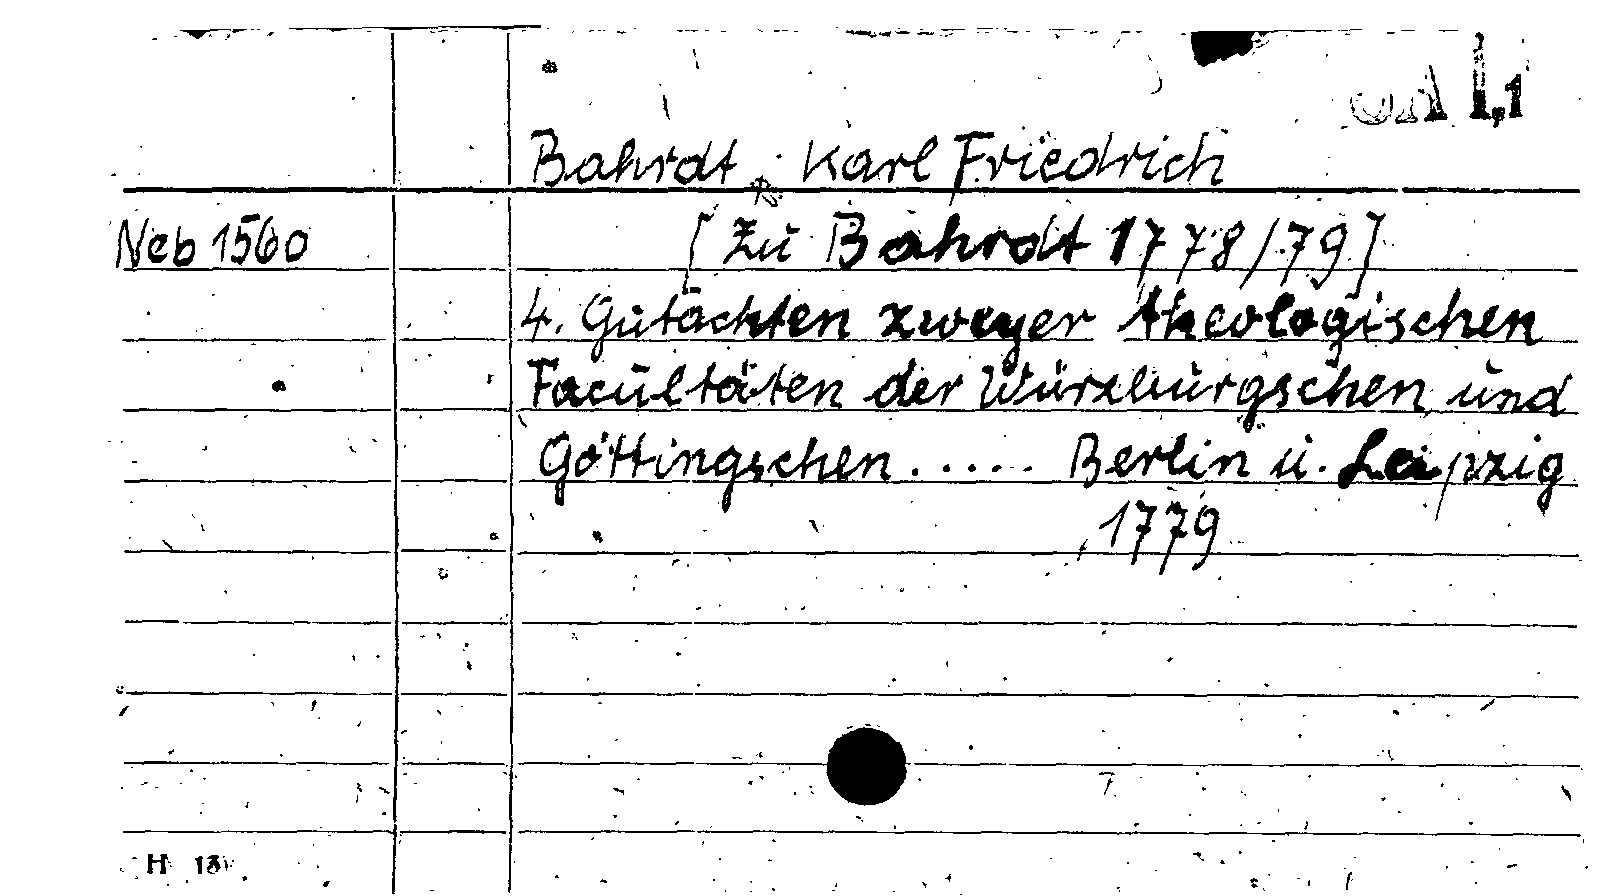 OA 1,1
Bahrdt, Karl Friedrich
Neb 1560 [Zu Bahrdt 1778/79]
4. Gutachten zweyer theologischen
Facultäten der Würzburgschen und
Göttingschen..... Berlin u. Leipzig
, 1779
H 13